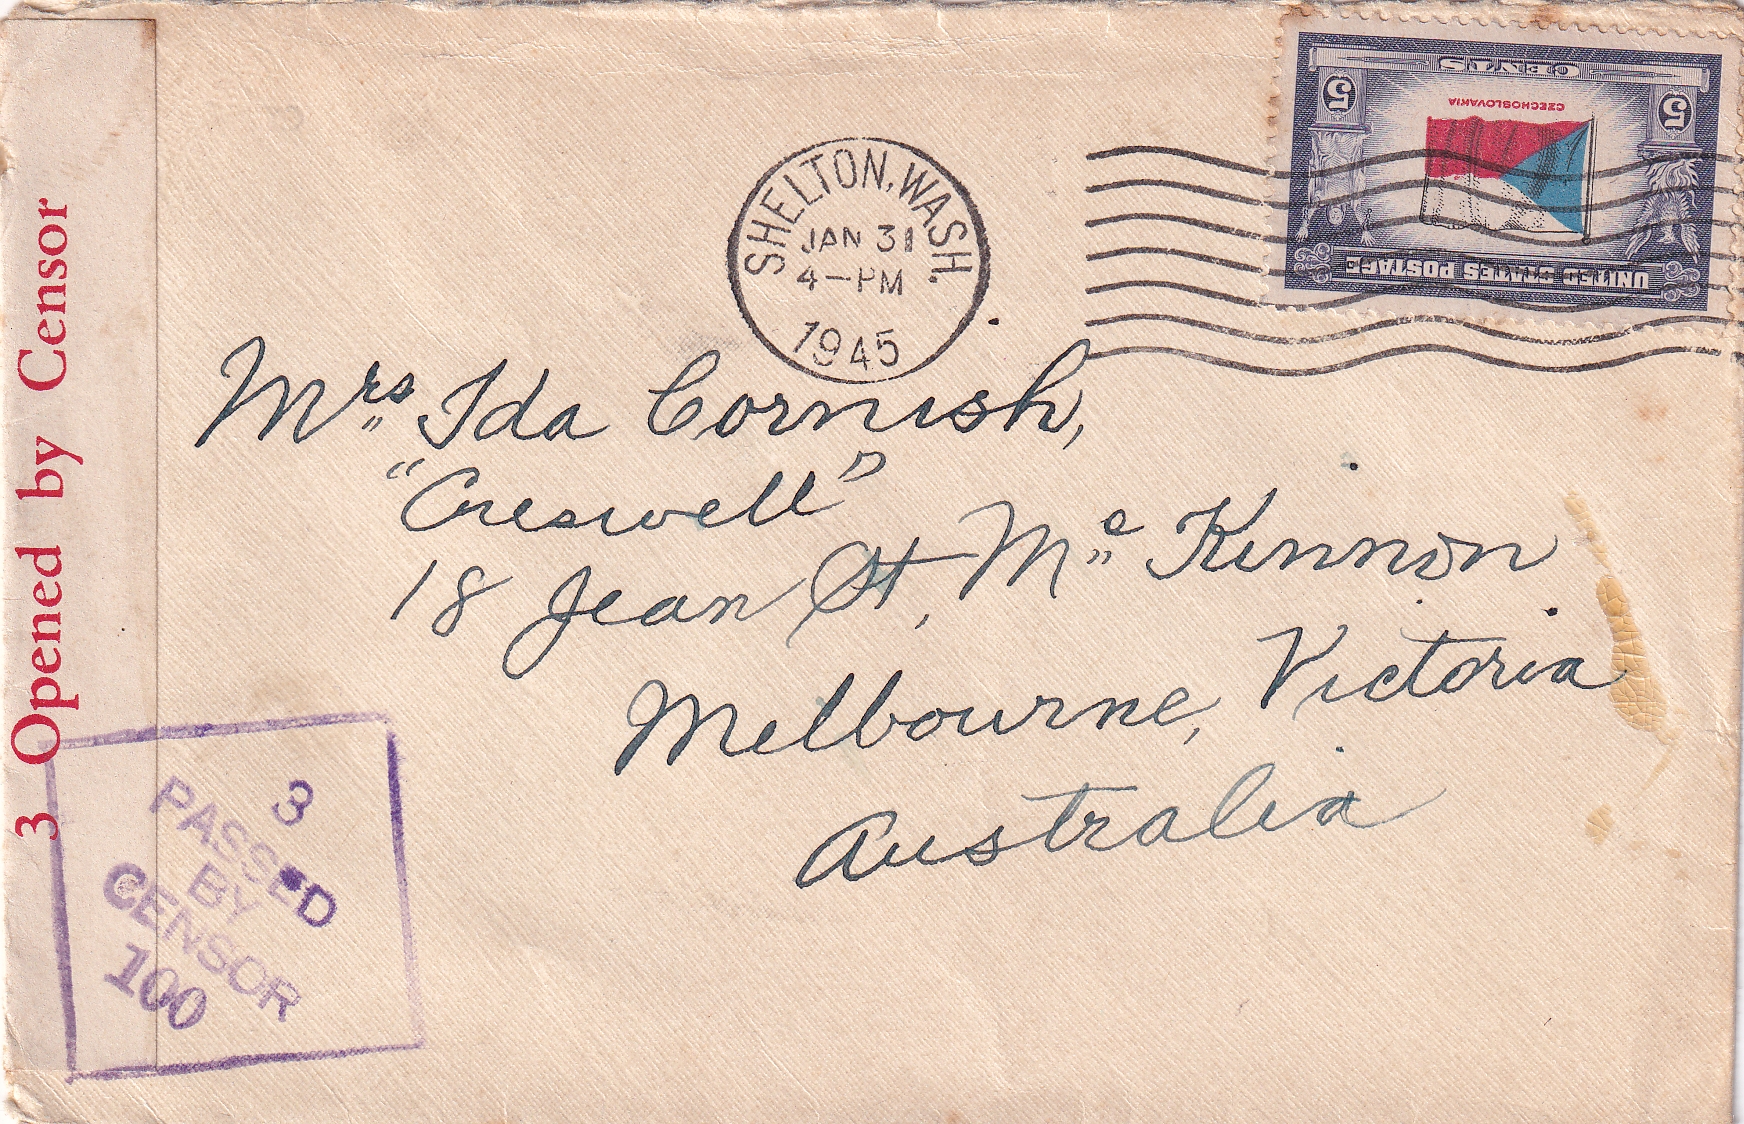 3 Opened by Censor
SHELTON, WASH.
JAN 31
4-PM
1945
CENTS
5 5
CZECHOSLOVAKIA
UNITED STATES POSTAGE
Mrs Ida Cornish,
"Creswell"
18 Jean St, Mc Kinnon
Melbourne, Victoria
Australia
3
PASSED
BY
CENSOR
100